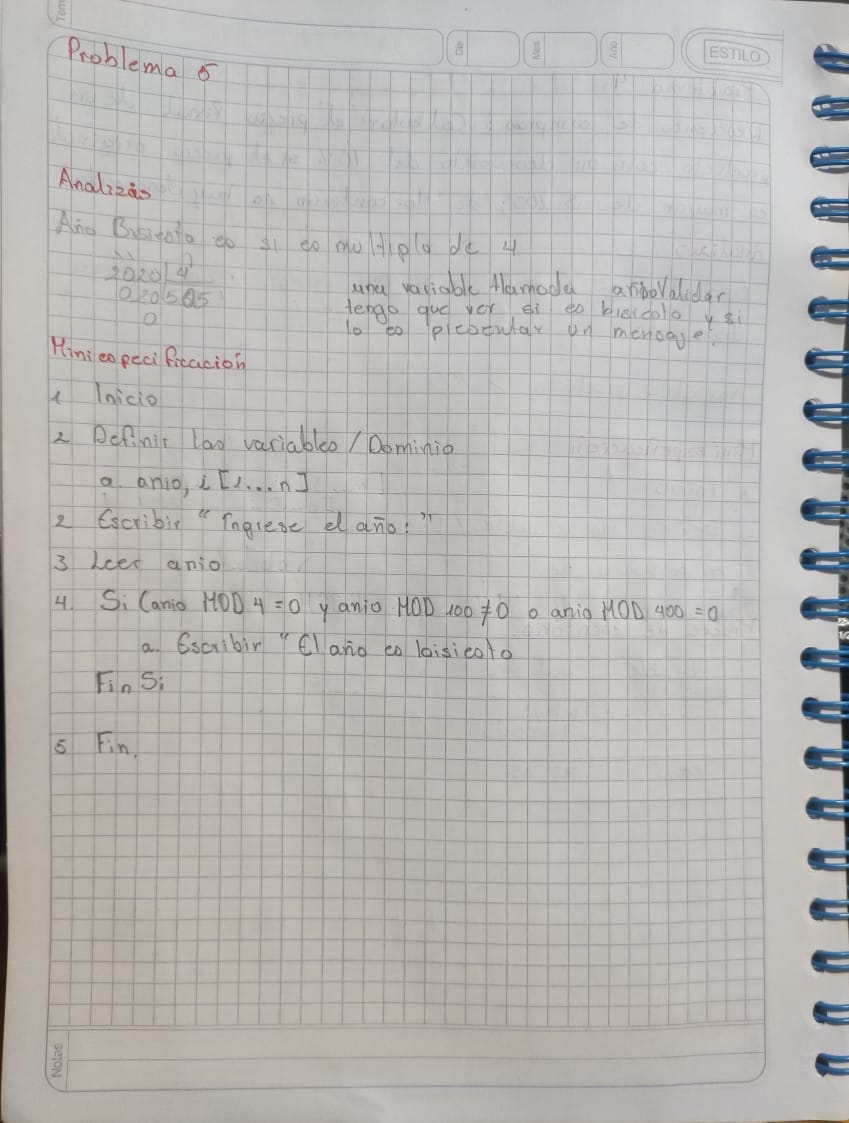 Tem
Dia
Mes
Año
ESTILO
Problema 5
Analizis
Año Bisiesto es si es multiplo de 4
2020 4
020 505
0
una variable llamada
tengo que ver si es bisiesto y si
lo es presentar un mensaje.
Miniespecificación
1 Inicio
2 Definir las variables / Dominio
a. anio, i [1...n]
2 Escribir "Ingrese el año: "
3 Leer anio
4. Si (anio MOD 4 = 0 y anio MOD 100 ≠ 0 o anio MOD 400 = 0
a. Escribir "El año es bisiesto
Fin Si
5 Fin.
Notas